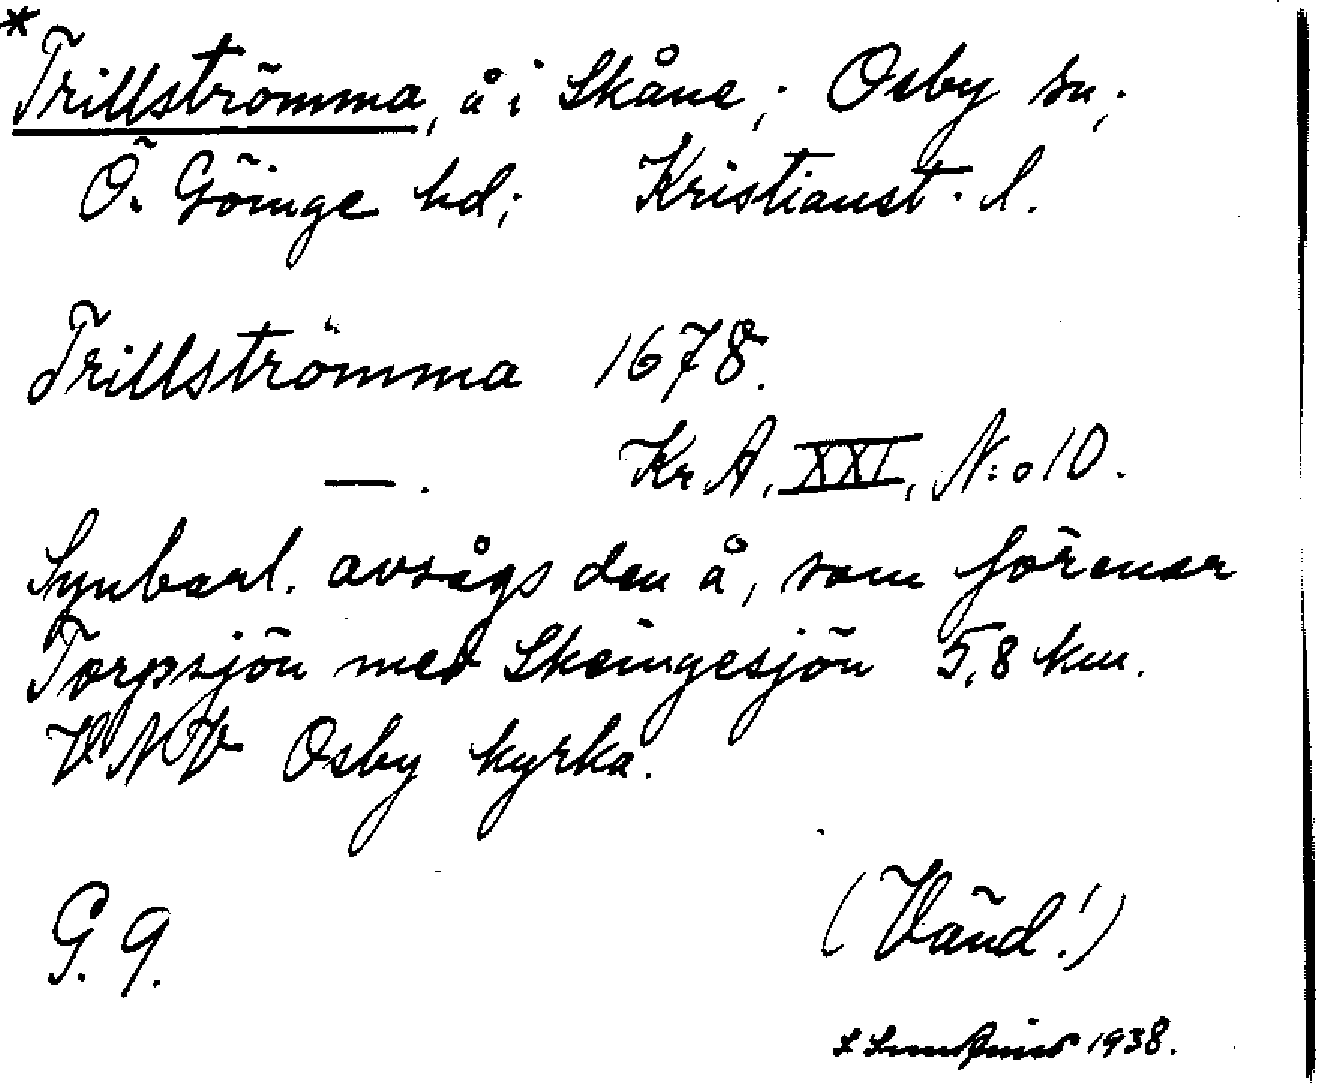 *Trillströmma, å i Skåne; Osby sn;
Ö. Göinge hd; Kristianst. l.
Trillströmma 1678.
—. Kr A, XXI, N:o 10.
Synbarl. avsågs den å, som förenar
Torpsjön med Skeingesjön 5,8 km.
VNV Osby kyrka.
G. 9.
(Vänd!)
1938.